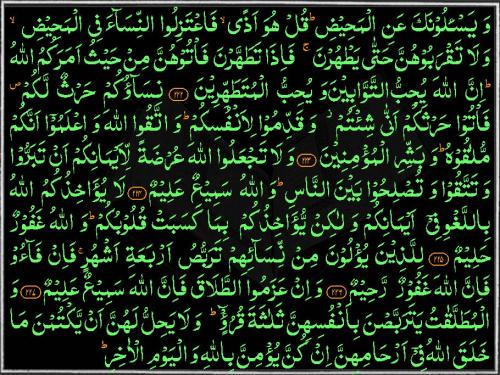 وَ يَسْـَٔلُوْنَكَ عَنِ الْمَحِيْضِ ؕ قُلْ هُوَ اَذًى ۙ فَاعْتَزِلُوا النِّسَآءَ فِى الْمَحِيْضِ ۙ
وَلَا تَقْرَبُوْهُنَّ حَتّٰى يَطْهُرْنَ ۚ فَاِذَا تَطَهَّرْنَ فَاْتُوْهُنَّ مِنْ حَيْثُ اَمَرَكُمُ اللّٰهُ
ؕ اِنَّ اللّٰهَ يُحِبُّ التَّوَّابِيْنَ وَ يُحِبُّ الْمُتَطَهِّرِيْنَ ﴿۲۲۲﴾ نِسَآؤُكُمْ حَرْثٌ لَّكُمْ ۪
فَاْتُوْا حَرْثَكُمْ اَنّٰى شِئْتُمْ ؗ وَ قَدِّمُوْا لِاَنْفُسِكُمْ ؕ وَ اتَّقُوا اللّٰهَ وَ اعْلَمُوْۤا اَنَّكُمْ
مُّلٰقُوْهُ ؕ وَ بَشِّرِ الْمُؤْمِنِيْنَ ﴿۲۲۳﴾ وَ لَا تَجْعَلُوا اللّٰهَ عُرْضَةً لِّاَيْمَانِكُمْ اَنْ تَبَرُّوْا
وَ تَتَّقُوْا وَ تُصْلِحُوْا بَيْنَ النَّاسِ ؕ وَ اللّٰهُ سَمِيْعٌ عَلِيْمٌ ﴿۲۲۴﴾ لَا يُؤَاخِذُكُمُ اللّٰهُ
بِاللَّغْوِ فِىْۤ اَيْمَانِكُمْ وَ لٰكِنْ يُّؤَاخِذُكُمْ بِمَا كَسَبَتْ قُلُوْبُكُمْ ؕ وَ اللّٰهُ غَفُوْرٌ
حَلِيْمٌ ﴿۲۲۵﴾ لِلَّذِيْنَ يُؤْلُوْنَ مِنْ نِّسَآئِهِمْ تَرَبُّصُ اَرْبَعَةِ اَشْهُرٍ ۚ فَاِنْ فَآءُوْ
فَاِنَّ اللّٰهَ غَفُوْرٌ رَّحِيْمٌ ﴿۲۲۶﴾ وَ اِنْ عَزَمُوا الطَّلَاقَ فَاِنَّ اللّٰهَ سَمِيْعٌ عَلِيْمٌ ﴿۲۲۷﴾ وَ
الْمُطَلَّقٰتُ يَتَرَبَّصْنَ بِاَنْفُسِهِنَّ ثَلٰثَةَ قُرُوْٓءٍ ؕ وَ لَا يَحِلُّ لَهُنَّ اَنْ يَّكْتُمْنَ مَا
خَلَقَ اللّٰهُ فِىْۤ اَرْحَامِهِنَّ اِنْ كُنَّ يُؤْمِنَّ بِاللّٰهِ وَ الْيَوْمِ الْاٰخِرِ ؕ